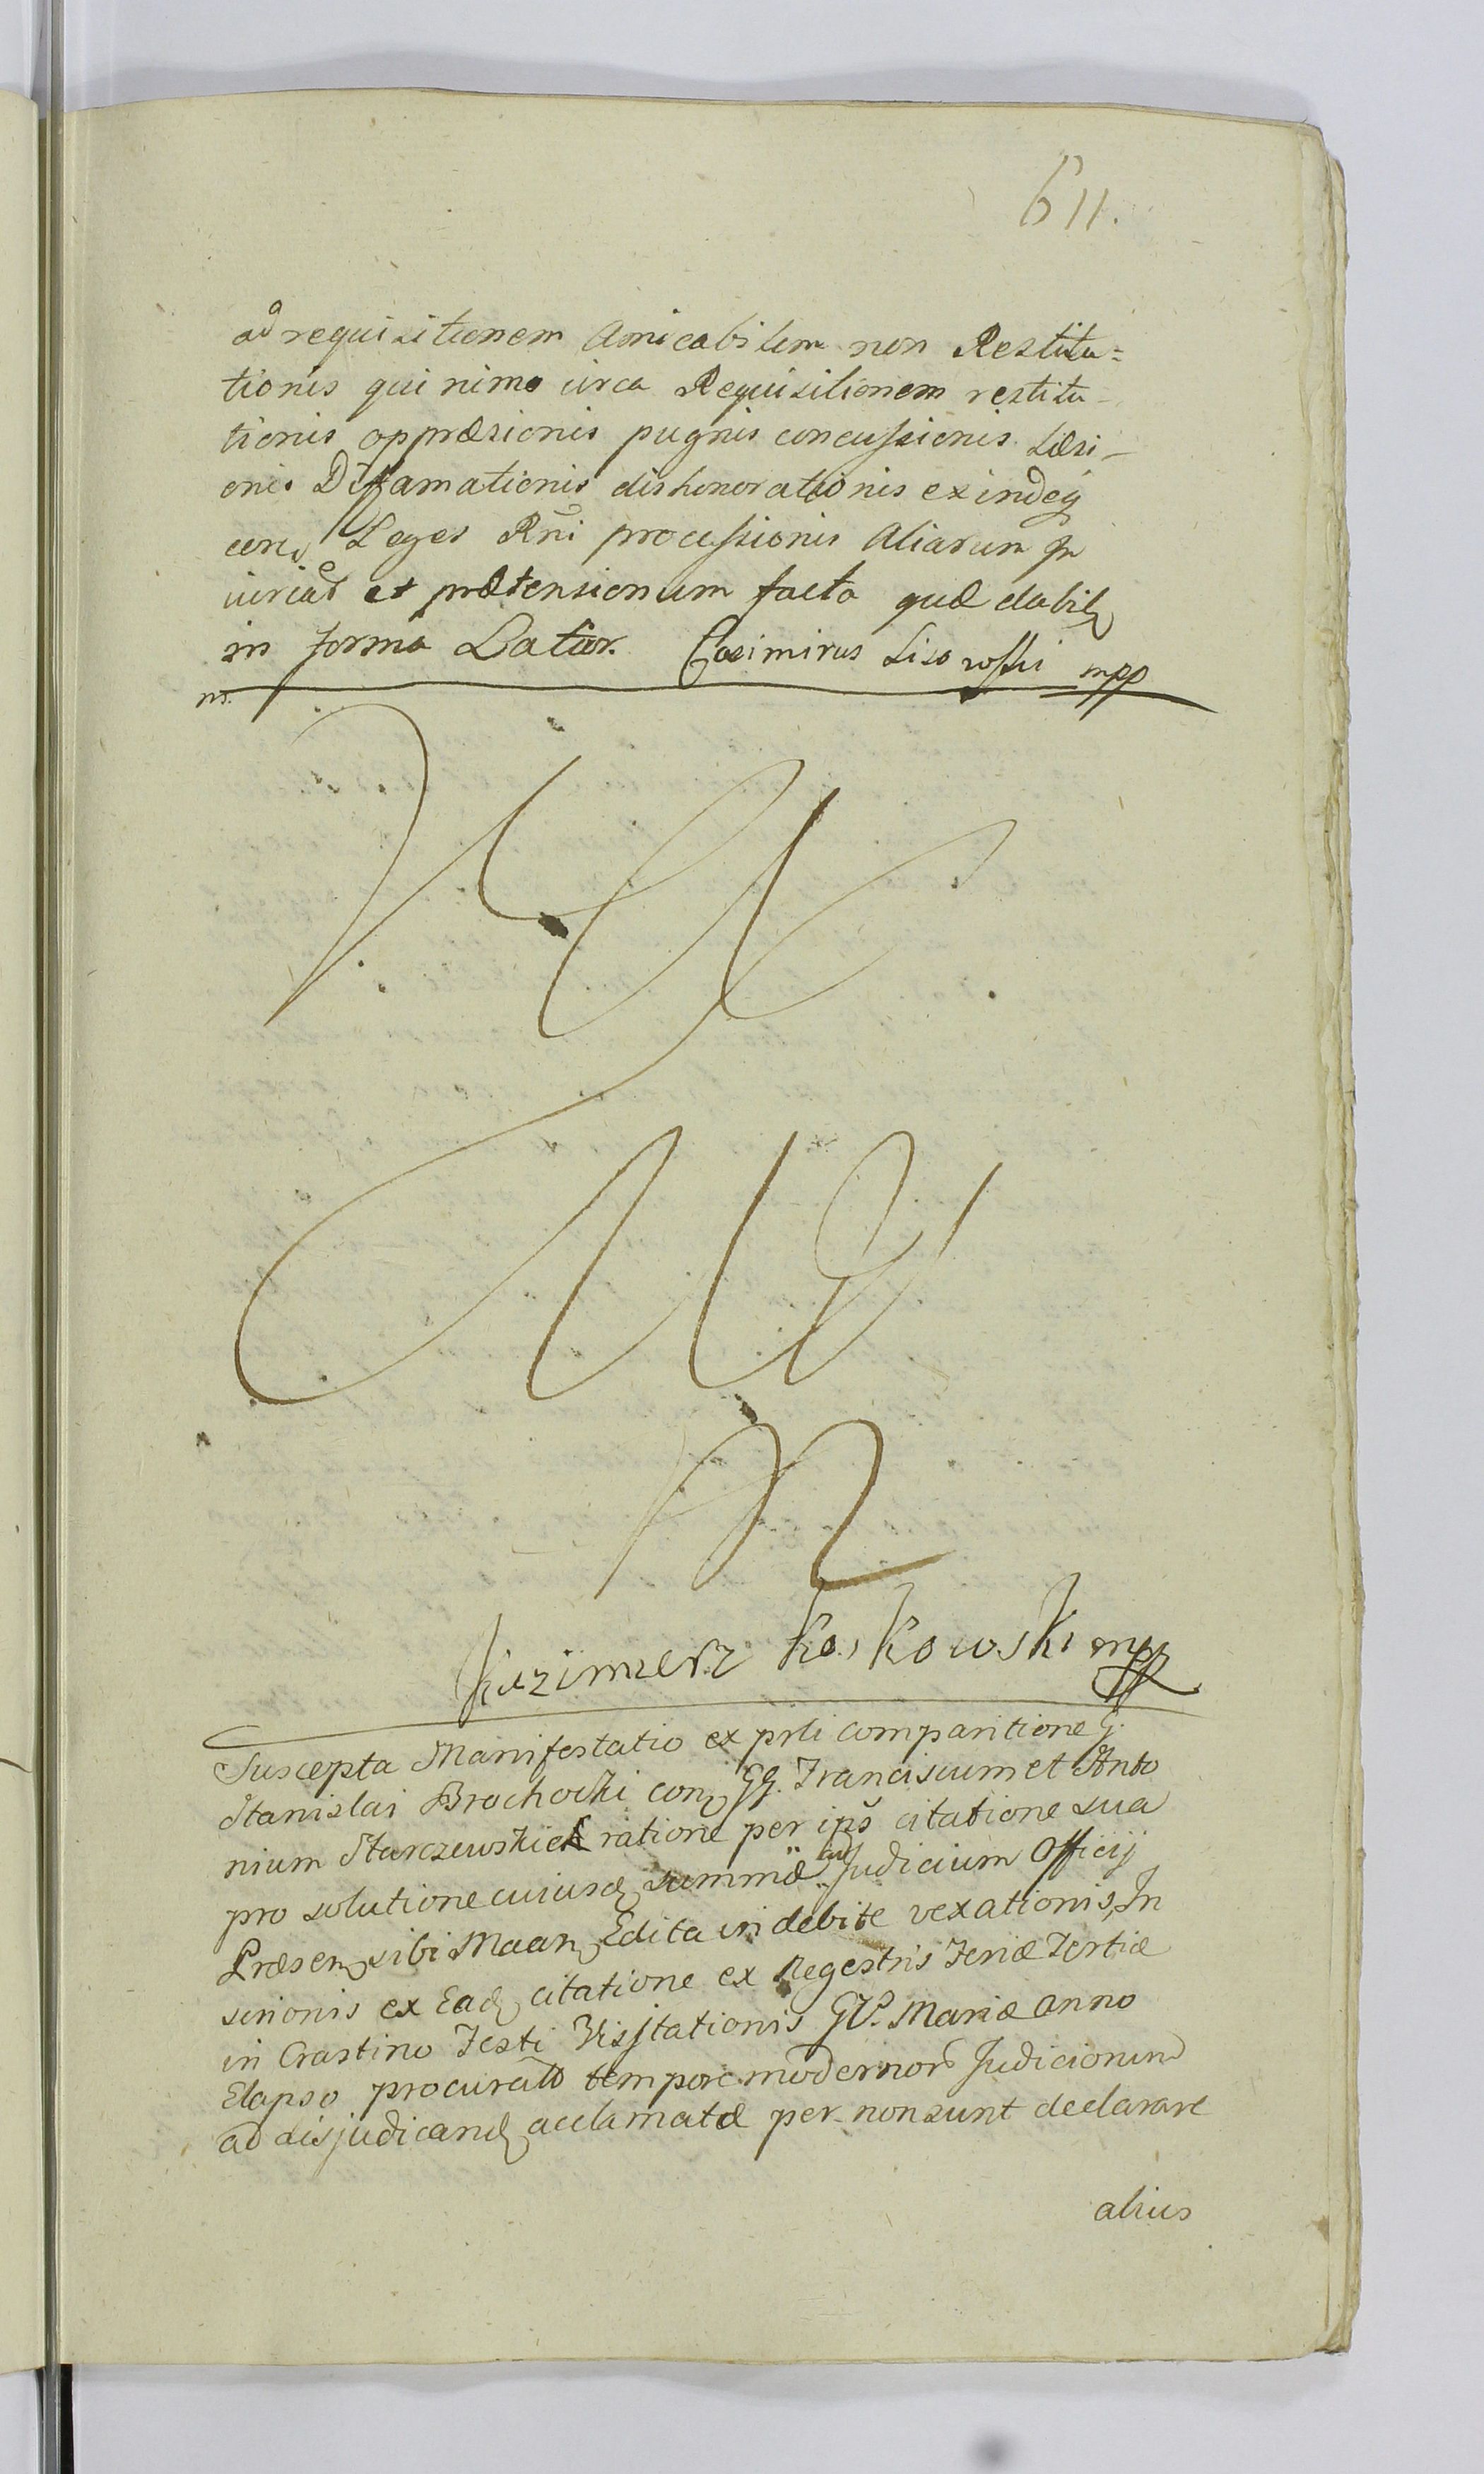 611.
ad requisitionem Amicabilem non Restitu=
tionis qui nimo circa Requisitionem restitu-
tionis oppræsionis pugnis concussionis Læsi-
onis Diffamationis dishonorationis exindeq
Leges Rñi processionis Aliarum In
iuriar et prætensionum facto quæ dabil
in forma Latior. Casimirus Lisowski mpp
Kazimierz Koskowski mpp
Suscepta Manifestatio ex prli comparitione G.
Stanislai Brochocki con GG. Franciscum et Anto
nium Starczewskich ratione per ips citatione sua
pro solutione cuiusd summæ ad Judicium Officij
Præsen sibi Maan Edita in debite vexationis, In
serionis ex Ead citatione ex Regestris Feriæ Tertiæ
in Crastino Festi Visitationis GV. Mariæ Anno
Elapso procurato tempore modernor Judiciorum
ad disjudicand acclamatæ per non sunt declarare
alius